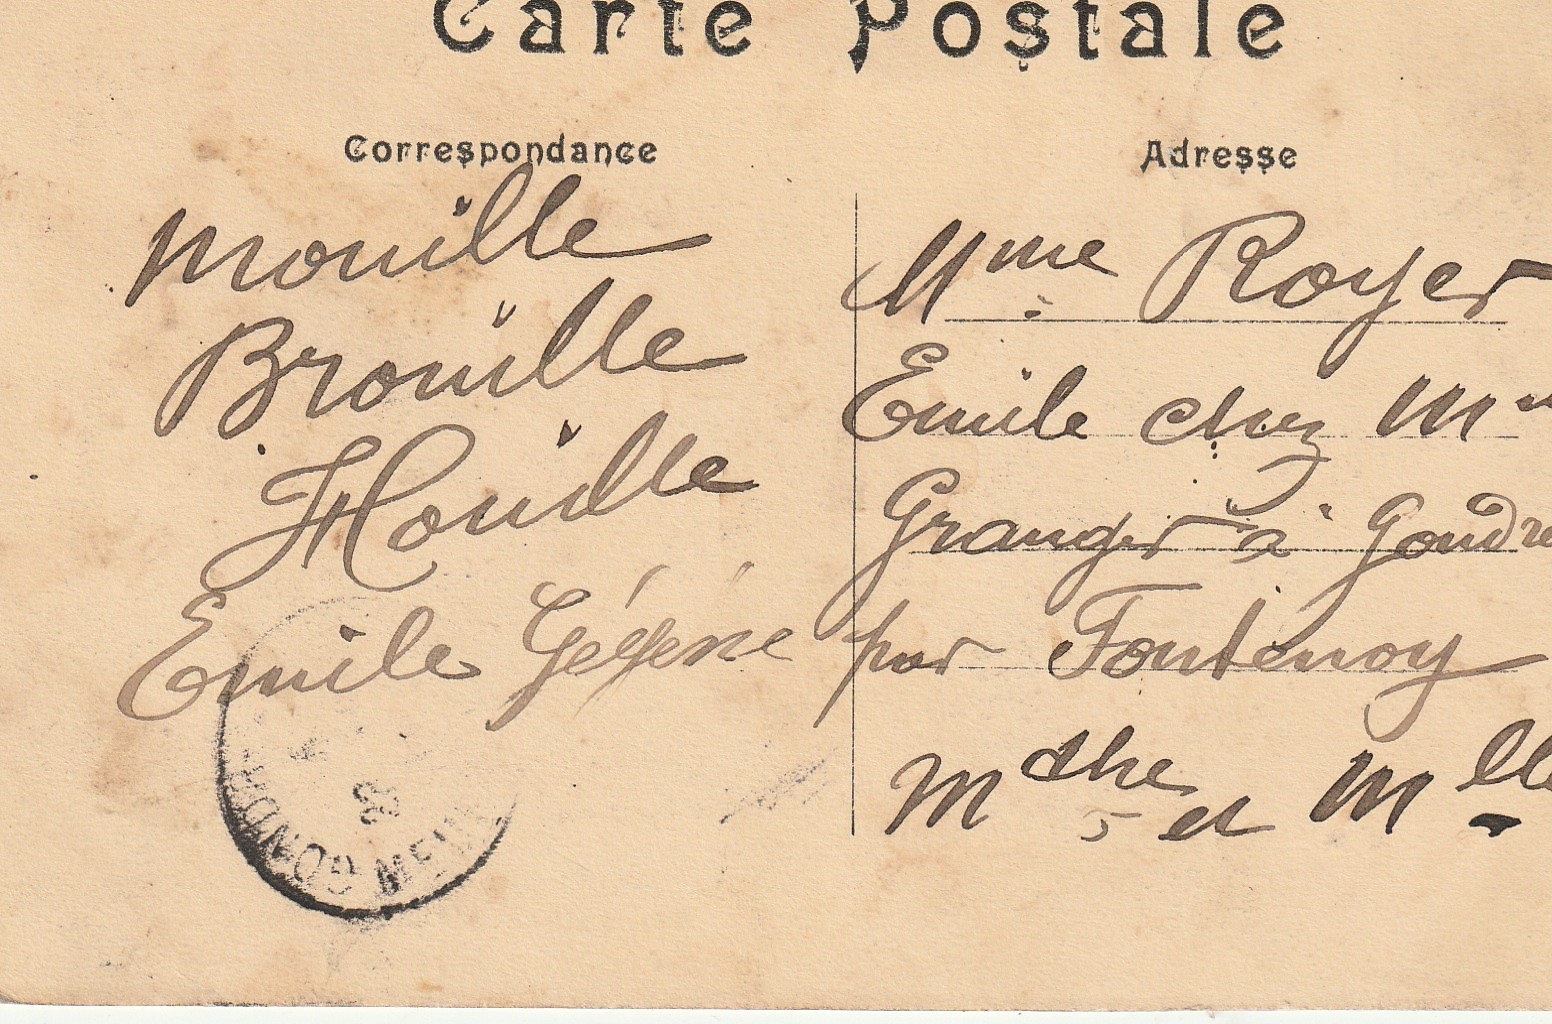 Carte Postale
Correspondance
Adresse
Mouille
Brouille
Houille
Emile Gégène
Mme Royer
Emile chez Mm
Granger à Gondre
par Fontenoy
Mthe et Mlle